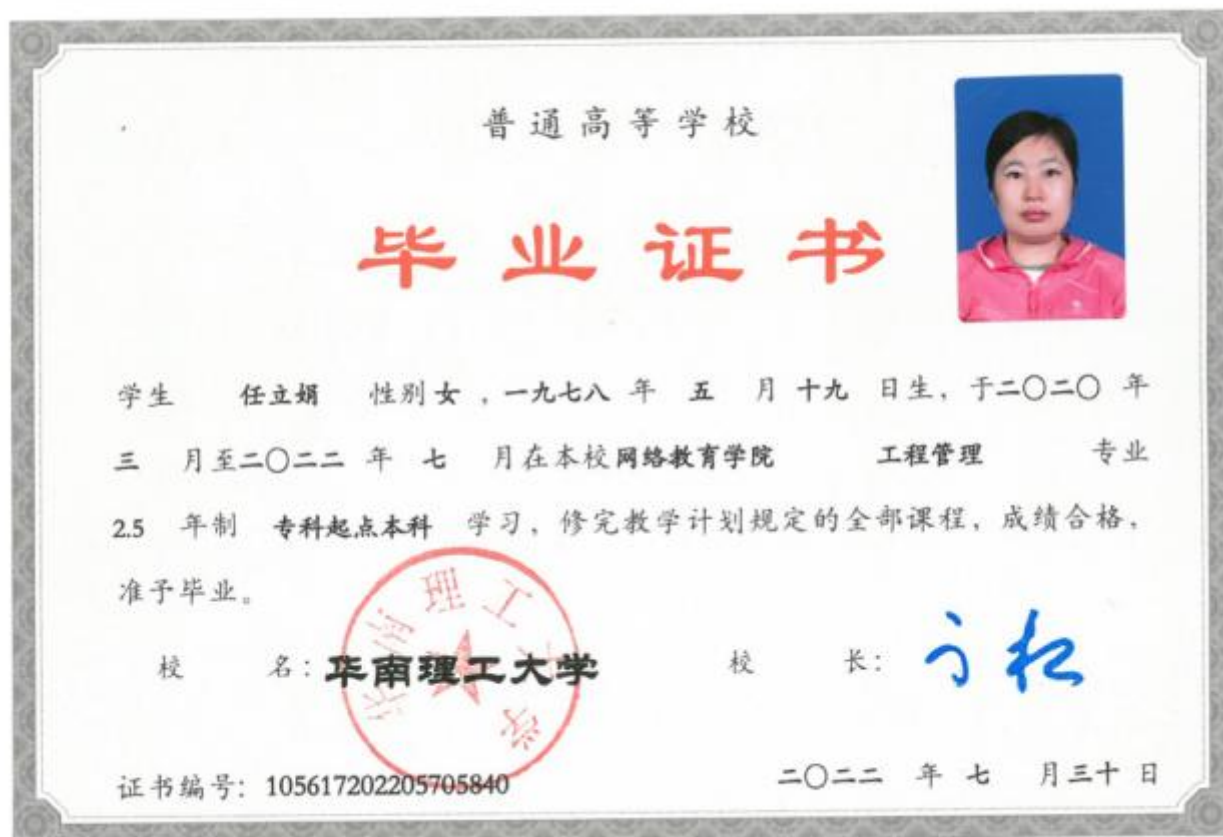 普通高等学校
毕业证书
学生 任立娟 性别 女 ，一九七八 年 五 月 十九 日生，于二〇二〇 年
三 月至二〇二二 年 七 月在本校 网络教育学院 工程管理 专业
2.5 年制 专科起点本科 学习，修完教学计划规定的全部课程，成绩合格，
准予毕业。
校 名：华南理工大学 校 长：
华南理工大学
证书编号：105617202205705840 二〇二二 年 七 月 三十 日